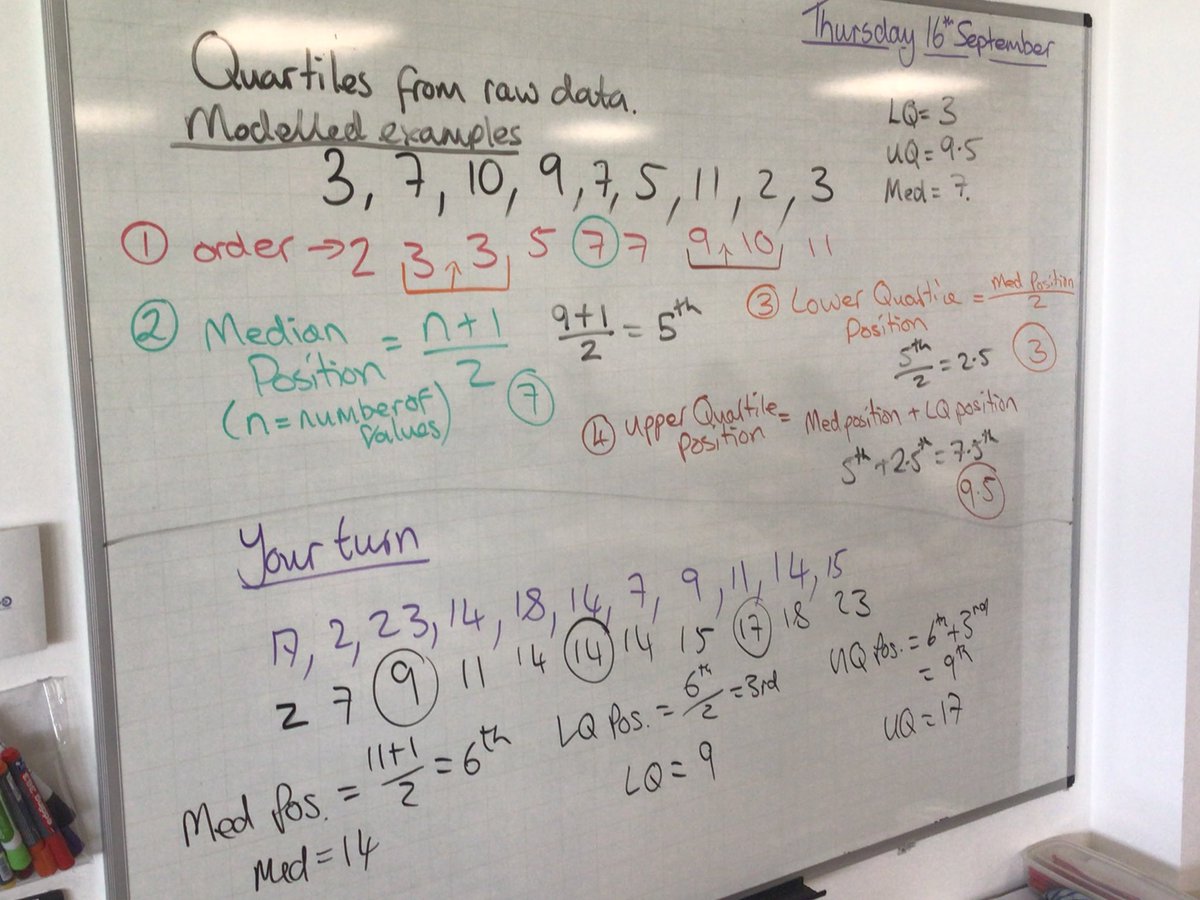 Thursday 16th September
Quartiles from raw data.
Modelled examples
LQ = 3
UQ = 9.5
Med = 7.
3, 7, 10, 9, 7, 5, 11, 2, 3
① order → 2 3, 3, 5 7 7 9, 10 11
② Median Position = n+1/2
(n = number of values)
9+1/2 = 5th
7
③ Lower Quartile Position = Med Position/2
5th/2 = 2.5
3
④ Upper Quartile Position = Med position + LQ position
5th + 2.5th = 7.5th
9.5
Your turn
17, 2, 23, 14, 18, 14, 7, 9, 11, 14, 15
2 7 9 11 14 14 14 15 17 18 23
Med Pos. = 11+1/2 = 6th
Med = 14
LQ Pos. = 6th/2 = 3rd
LQ = 9
UQ Pos. = 6th + 3rd
= 9th
UQ = 17